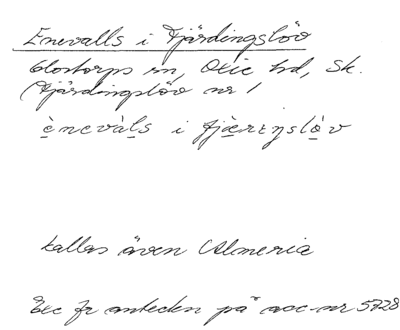 Enevalls i Fjärdingslöv
Glostorps sn, Oxie hd, Sk.
(Fjärdingslöv nr 1
ènevàls i fjæ̀reŋslòv
kallas även Almeria
Exc fr anteckn på acc-nr 5728